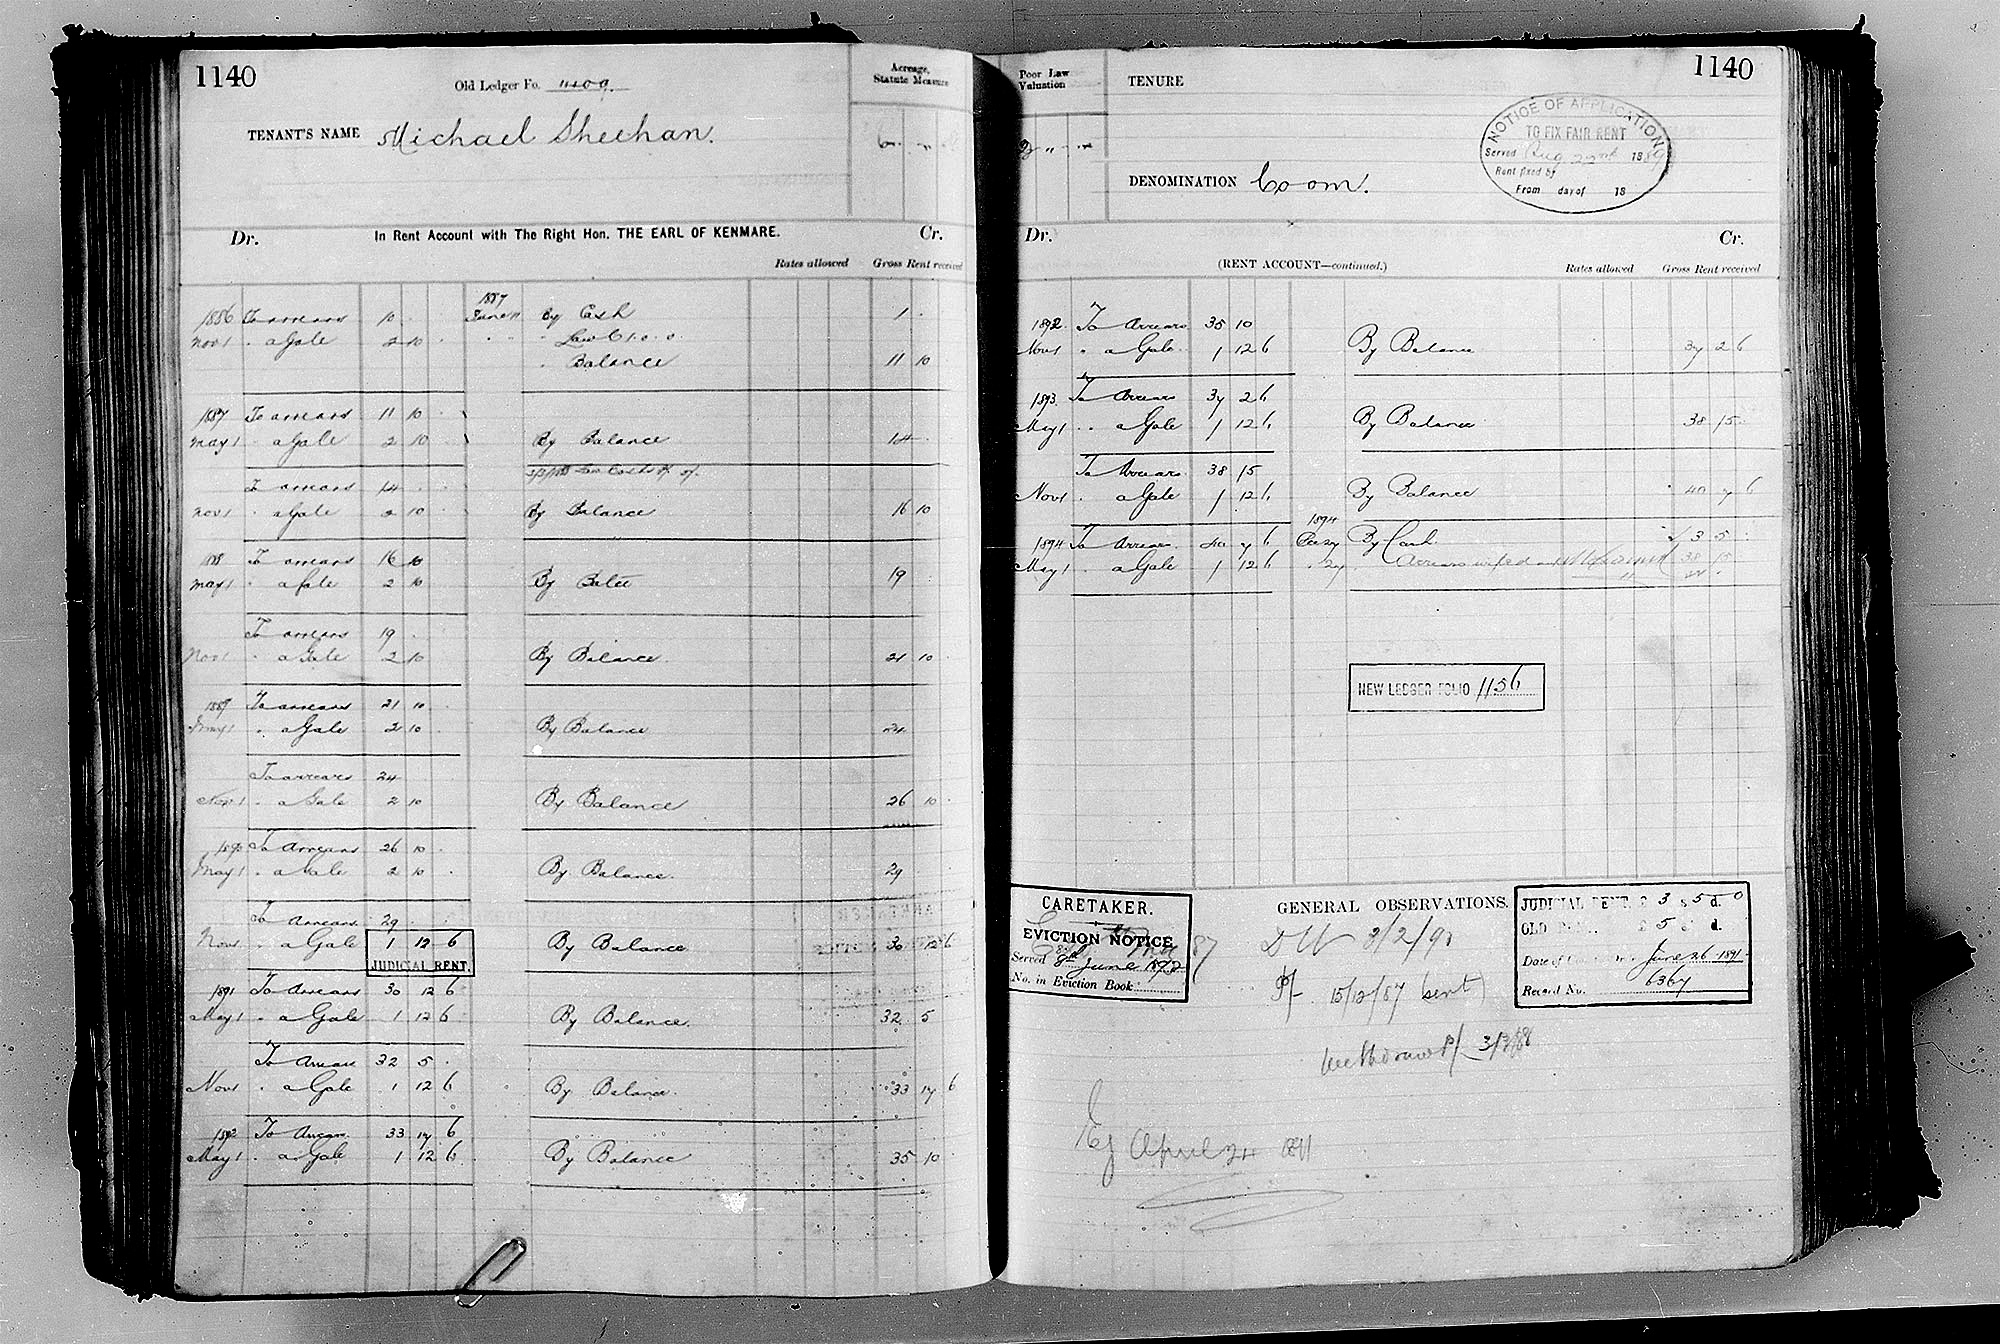 1140
Old Ledger Fo. 1109
Acreage, Statute Measure
TENANT'S NAME Michael Sheehan.
Dr. In Rent Account with The Right Hon. THE EARL OF KENMARE. Cr.
Rates allowed Gross Rent received
1886 To arrears 10 1887 June By Cash 1
Nov 1 " a Gale 2 10 Law C 1. 0. 0
" Balance 11 10
1887 To arrears 11 10
May 1 " a Gale 2 10 By Balance 14
To arrears 14
Nov 1 " a Gale 2 10 By Balance 16 10
1888 To arrears 16 10
May 1 " a Gale 2 10 By Balce 19
To arrears 19
Nov 1 " a Gale 2 10 By Balance 21 10
1889 To arrears 21 10
May 1 " a Gale 2 10 By Balance 24
To arrears 24
Nov 1 " a Gale 2 10 By Balance 26 10
1890 To Arrears 26 10
May 1 " a Gale 2 10 By Balance 29
To Arrears 29
Nov 1 " a Gale 1 12 6 By Balance 30 12 6
JUDICIAL RENT.
1891 To Arrears 30 12 6
May 1 " a Gale 1 12 6 By Balance 32 5
To Arrears 32 5
Nov 1 " a Gale 1 12 6 By Balance 33 17 6
1892 To Arrears 33 17 6
May 1 " a Gale 1 12 6 By Balance 35 10
1140
Poor Law Valuation
TENURE
DENOMINATION Coom.
NOTICE OF APPLICATION
TO FIX FAIR RENT
Served Aug 22nd 1889
Rent fixed by
From day of 18
Dr. Cr.
(RENT ACCOUNT—continued.) Rates allowed Gross Rent received
1892 To Arrears 35 10
Nov 1 " a Gale 1 12 6 By Balance 37 2 6
1893 To Arrears 37 2 6
May 1 " a Gale 1 12 6 By Balance 38 15
To Arrears 38 15
Nov 1 " a Gale 1 12 6 By Balance 40 7 6
1894
1894 To Arrears 40 7 6 By Cash 3 5
May 1 " a Gale 1 12 6 27 Arrears wiped 38 15
NEW LEDGER FOLIO 1156
CARETAKER.
EVICTION NOTICE
Served 8th June 1892
No. in Eviction Book
GENERAL OBSERVATIONS.
JUDICIAL RENT, £ 3 s 5 d. 0
OLD £ 5 s d.
Date of June 26 1891
Record No. 6367
3/2/91
15/12/87 (sent)
Withdraw 3/3/88
Ej April 24